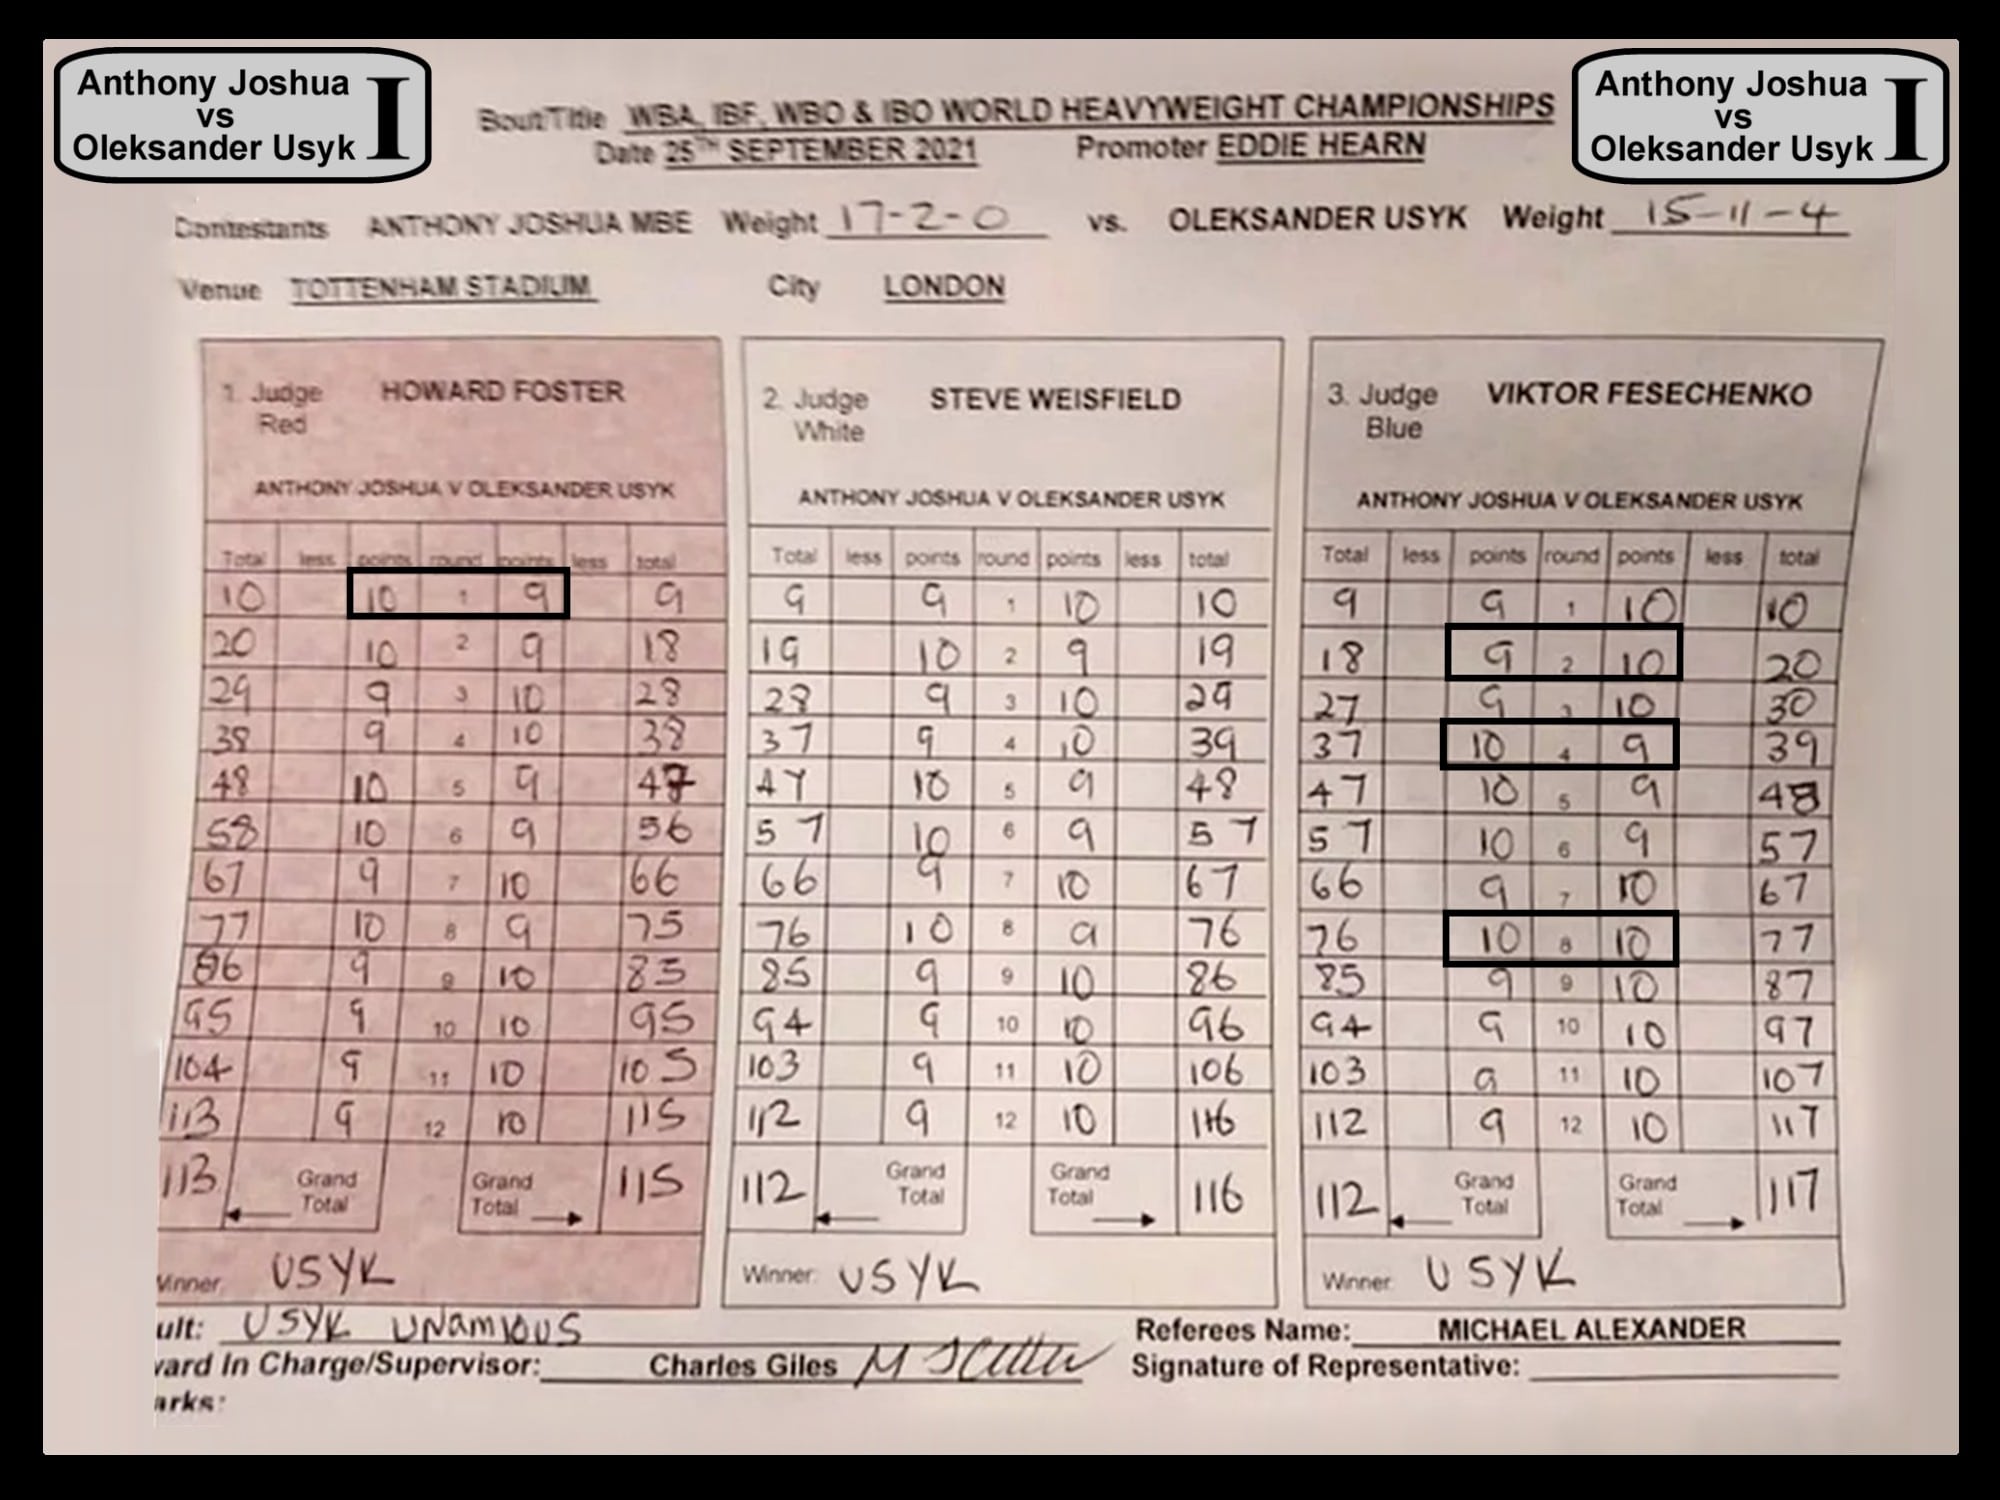 Anthony Joshua
vs
Oleksander Usyk I
Anthony Joshua
vs
Oleksander Usyk I
Bout/Title WBA, IBF, WBO & IBO WORLD HEAVYWEIGHT CHAMPIONSHIPS
Date 25TH SEPTEMBER 2021 Promoter EDDIE HEARN
Contestants ANTHONY JOSHUA MBE Weight 17-2-0 vs. OLEKSANDER USYK Weight 15-11-4
Venue TOTTENHAM STADIUM City LONDON
1. Judge HOWARD FOSTER
Red
ANTHONY JOSHUA V OLEKSANDER USYK
Total less points round points less total
10 10 1 9 9
20 10 2 9 18
29 9 3 10 28
38 9 4 10 38
48 10 5 9 47
58 10 6 9 56
67 9 7 10 66
77 10 8 9 75
86 9 9 10 85
95 9 10 10 95
104 9 11 10 105
113 9 12 10 115
113 Grand Total Grand Total 115
Winner: USYK
2. Judge STEVE WEISFIELD
White
ANTHONY JOSHUA V OLEKSANDER USYK
Total less points round points less total
9 9 1 10 10
19 10 2 9 19
28 9 3 10 29
37 9 4 10 39
47 10 5 9 48
57 10 6 9 57
66 9 7 10 67
76 10 8 9 76
85 9 9 10 86
94 9 10 10 96
103 9 11 10 106
112 9 12 10 116
112 Grand Total Grand Total 116
Winner: USYK
3. Judge VIKTOR FESECHENKO
Blue
ANTHONY JOSHUA V OLEKSANDER USYK
Total less points round points less total
9 9 1 10 10
18 9 2 10 20
27 9 3 10 30
37 10 4 9 39
47 10 5 9 48
57 10 6 9 57
66 9 7 10 67
76 10 8 10 77
85 9 9 10 87
94 9 10 10 97
103 9 11 10 107
112 9 12 10 117
112 Grand Total Grand Total 117
Winner: USYK
ult: USYK UNAMIOUS Referees Name: MICHAEL ALEXANDER
ward In Charge/Supervisor: Charles Giles Signature of Representative:
arks: